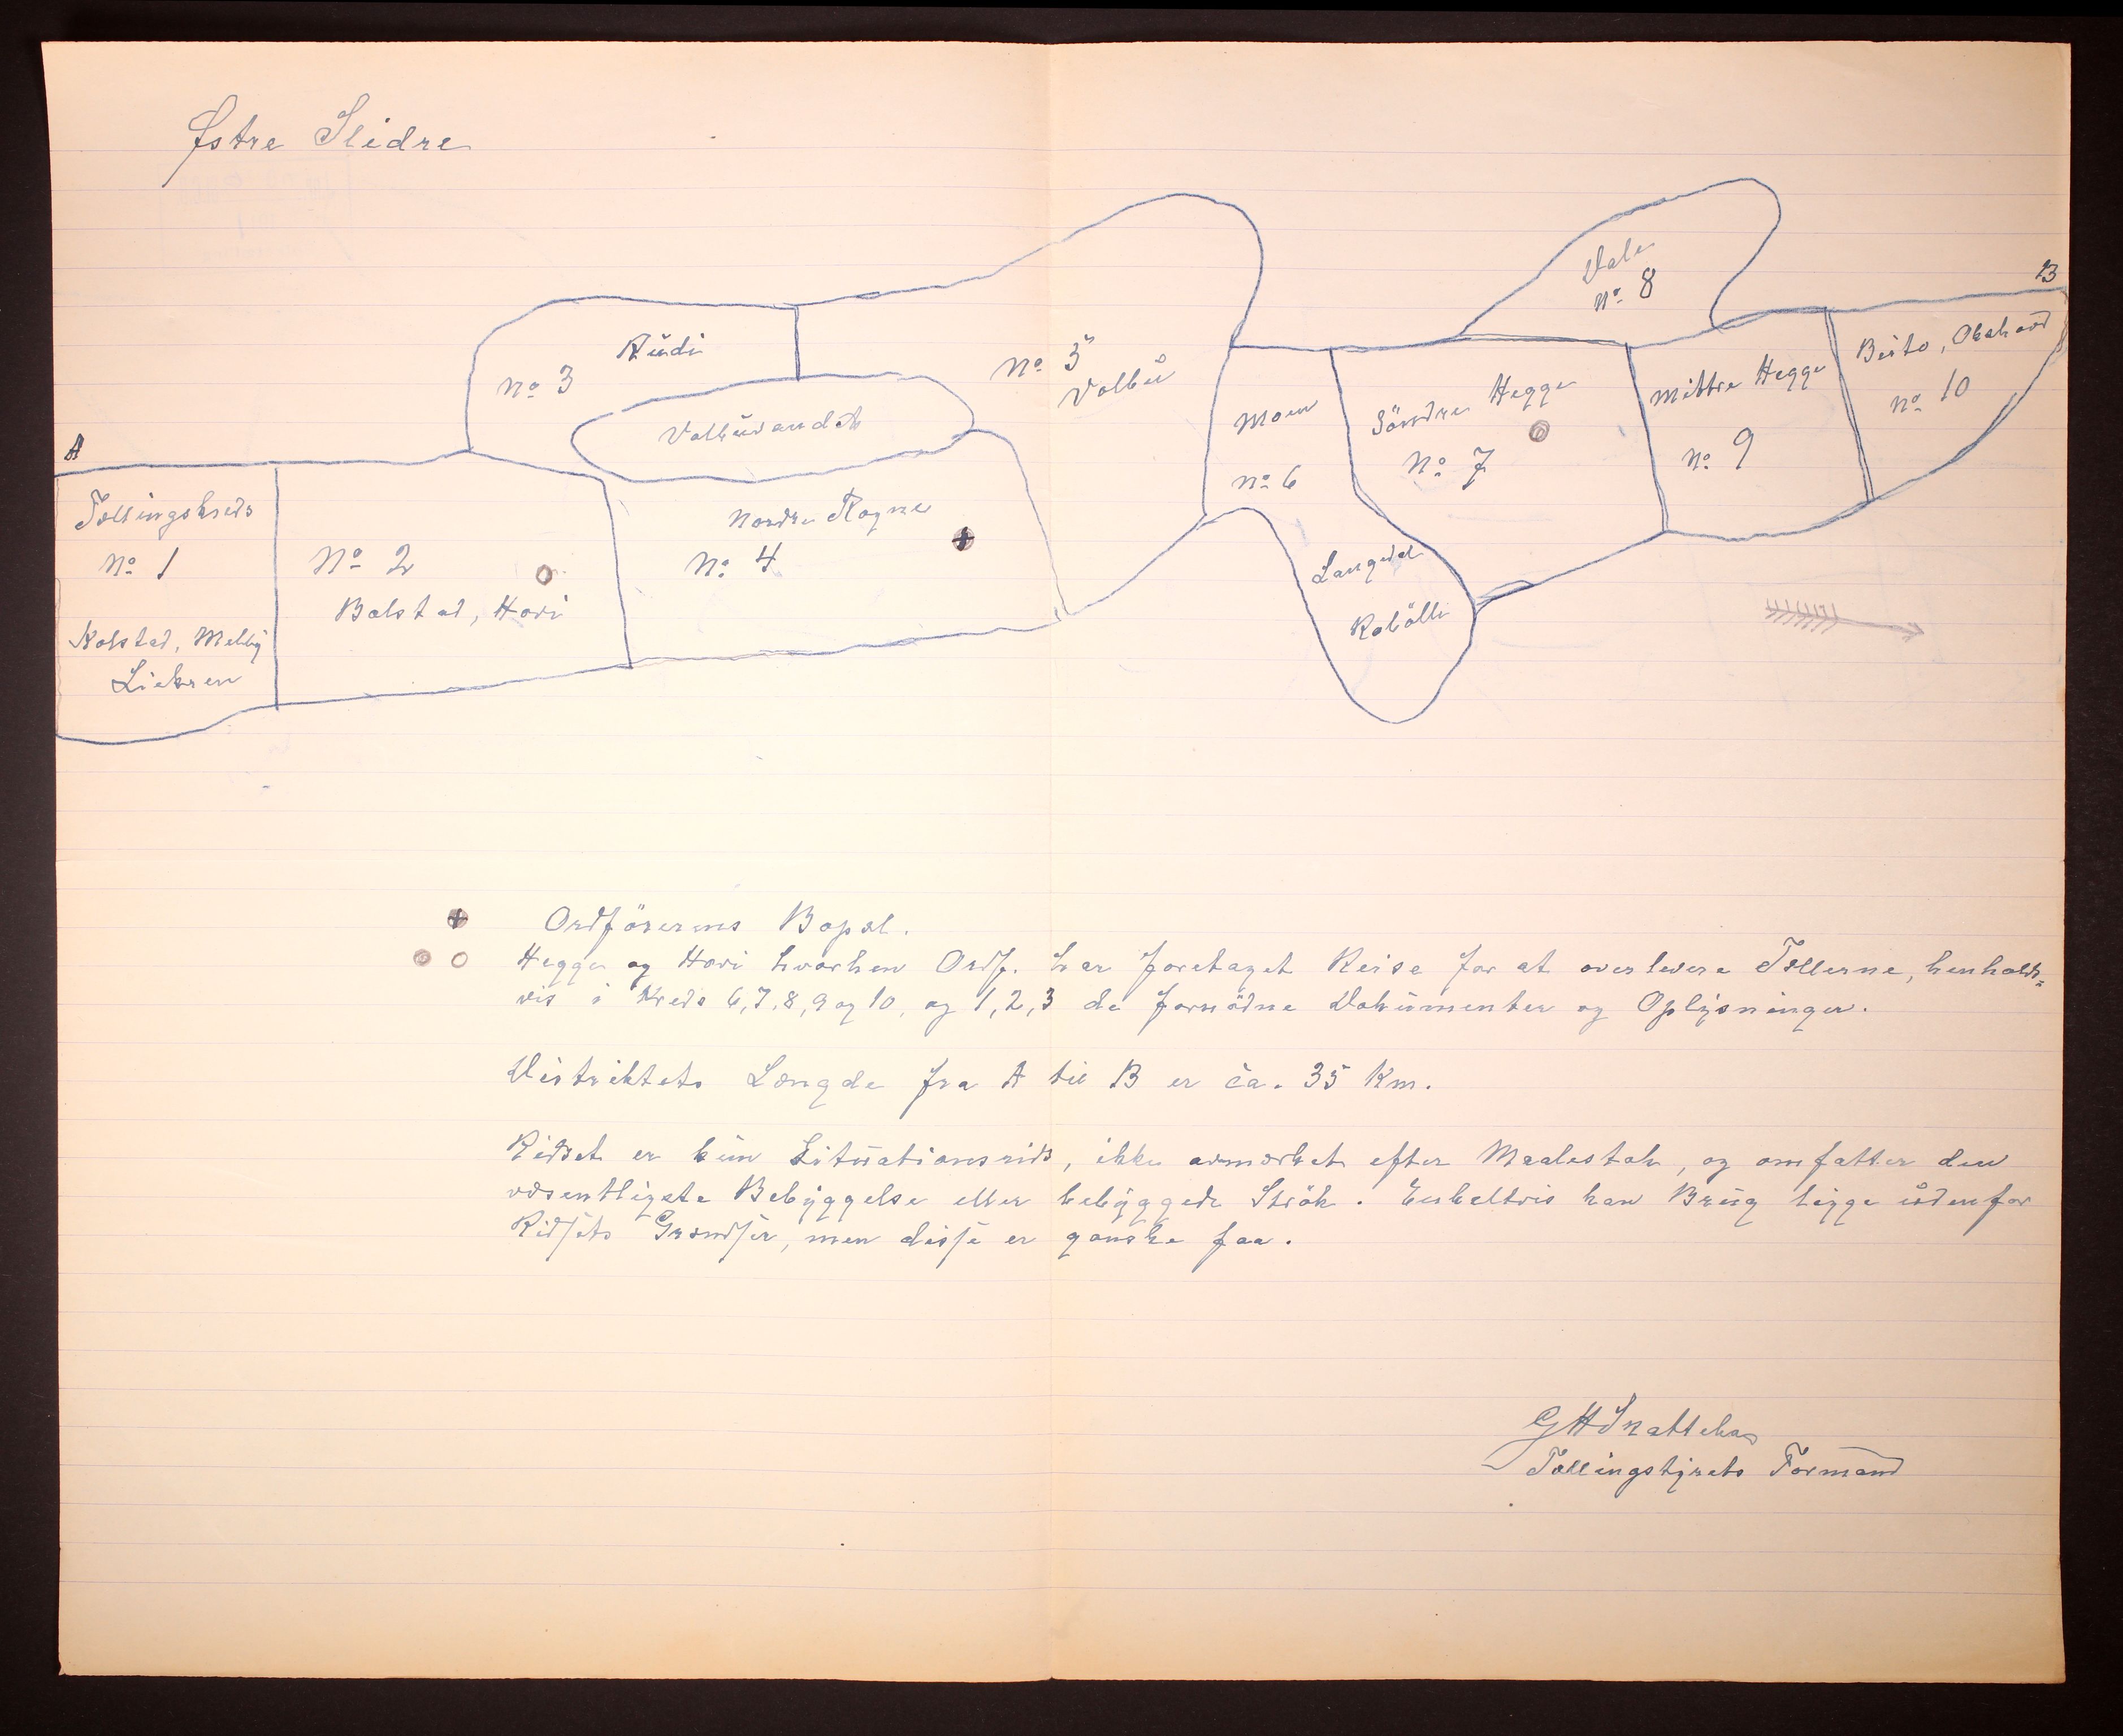 Østre Slidre
B
Dale
No. 8
Rudi
No 3
No 5
Volbu
Volbuvandet
Beito, Okshovd
No 10
Mittre Hegge
No 9
Söndre Hegge
No 7
Moen
No 6
A
Tællingskreds
No 1
Kolstad, Melby
Liekren
No 2
Bolstad, Hovi
Nordre Rogne
No 4
Langedal
Robölle
+ Ordförerens Bopæl.
Hegge og Hovi hvorhen Ordf. har foretaget Reise for at overlevere Tællerne, henholds=
vis i Kreds 6, 7, 8, 9 og 10, og 1, 2, 3 de fornödne Dokumenter og Oplysninger.
Distriktets Længde fra A til B er ca. 35 Km.
Ridset er kun Situationsrids, ikke avmærket efter Maalestok, og omfatter den
væsentligste Bebyggelse eller bebyggede Strök. Enkeltvis kan Brug ligge udenfor
Ridsets Grændser, men disse er ganske faa.
Tællingstyrets Formand